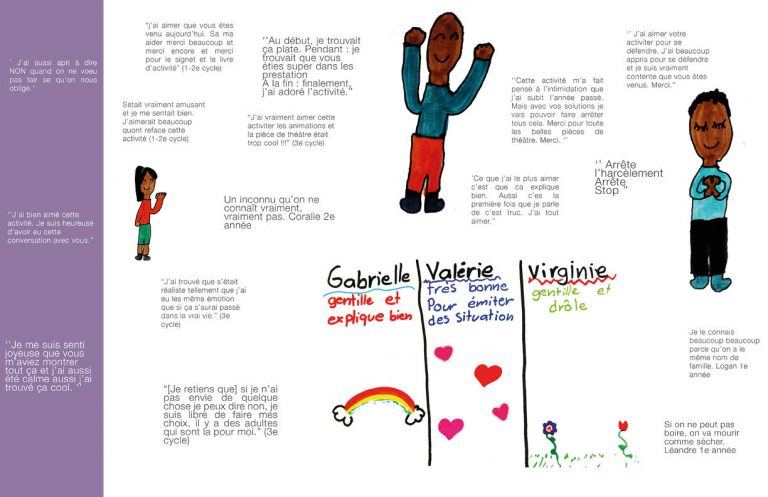 ' J'ai aussi apri à dire
NON quand on ne voeu
pas fair se qu'on nous
oblige.''
''J'ai bien aimé cette
activité. Je suis heureuse
d'avoir eu cette
conversation avec vous.''
''Je me suis senti
joyeuse que vous
m'aviez montrer
tout ça et j'ai aussi
été calme aussi j'ai
trouvé ça cool. ''
"j'ai aimer que vous êtes
venu aujourd'hui. Sa ma
aider merci beaucoup et
merci encore et merci
pour le signet et le livre
d'activité" (1-2e cycle)
Sétait vraiment amusant
et je me sentait bien.
J'aimerait beaucoup
quont reface cette
activité (1-2e cycle)
''Au début, je trouvait
ça plate. Pendant : je
trouvait que vous
étiés super dans les
prestation
A la fin : finalement,
j'ai adoré l'activité.''
"J'ai vraiment aimer cette
activiter les animations et
la pièce de théâtre était
trop cool !!!" (3e cycle)
Un inconnu qu'on ne
connaît vraiment,
vraiment pas. Coralie 2e
année
"J'ai trouvé que s'était
réaliste tellement que j'ai
eu les même émotion
que si ça s'aurai passé
dans la vrai vie." (3e
cycle)
"[Je retiens que] si je n'ai
pas envie de quelque
chose je peux dire non, je
suis libre de faire mes
choix, il y a des adultes
qui sont la pour moi." (3e
cycle)
''Cette activité m'a fait
pensé à l'intimidation que
j'ai subit l'année passé.
Mais avec vos solutions je
vais pouvoir faire arrêter
tous cela. Merci pour toute
les belles pièces de
théâtre. Merci. ''
'Ce que j'ai le plus aimer
c'est que ca explique
bien. Aussi c'es la
première fois que je parle
de c'est truc. J'ai tout
aimer.''
'' J'ai aimer votre
activiter pour se
défendre. J'ai beaucoup
appris pour se défendre
et je suis vraiment
contente que vous êtes
venus. Merci.''
'' Arrête
l'harcèlement
Arrête
Stop ''
Gabrielle
gentille et
explique bien
Valérie
très bonne
Pour émiter
des situation
Virginie
gentille et
drôle
Je le connais
beaucoup beaucoup
parce qu'on a le
même nom de
famille. Logan 1e
année
Si on ne peut pas
boire, on va mourir
comme sécher.
Léandre 1e année